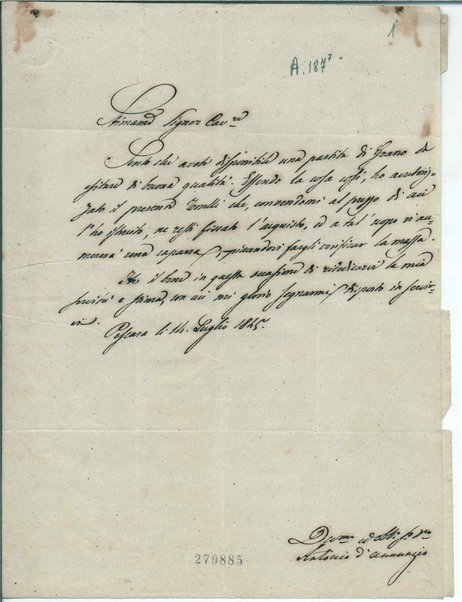 1
A. 187⁷
Stimamo Signor Cavre
Sento che avete disponibile una partita di Grano da
esitare di buona qualità. Essendo la cosa così, ho autoriz-
zato il presente che, convenendomi al prezzo di cui
l'ho istruito, ne resti fissato l'acquisto, ed a tal uopo vi nu-
mererà una caparra, piacendovi fargli verificar la massa.
Ho il bene in questa occasione di la mia
servitù e stima, con cui mi glorio segnarmi disposto in servir-
vi.
Pescara li 14 Luglio 1845.
Devmo ed Obb
Antonio d'Annunzio
279885